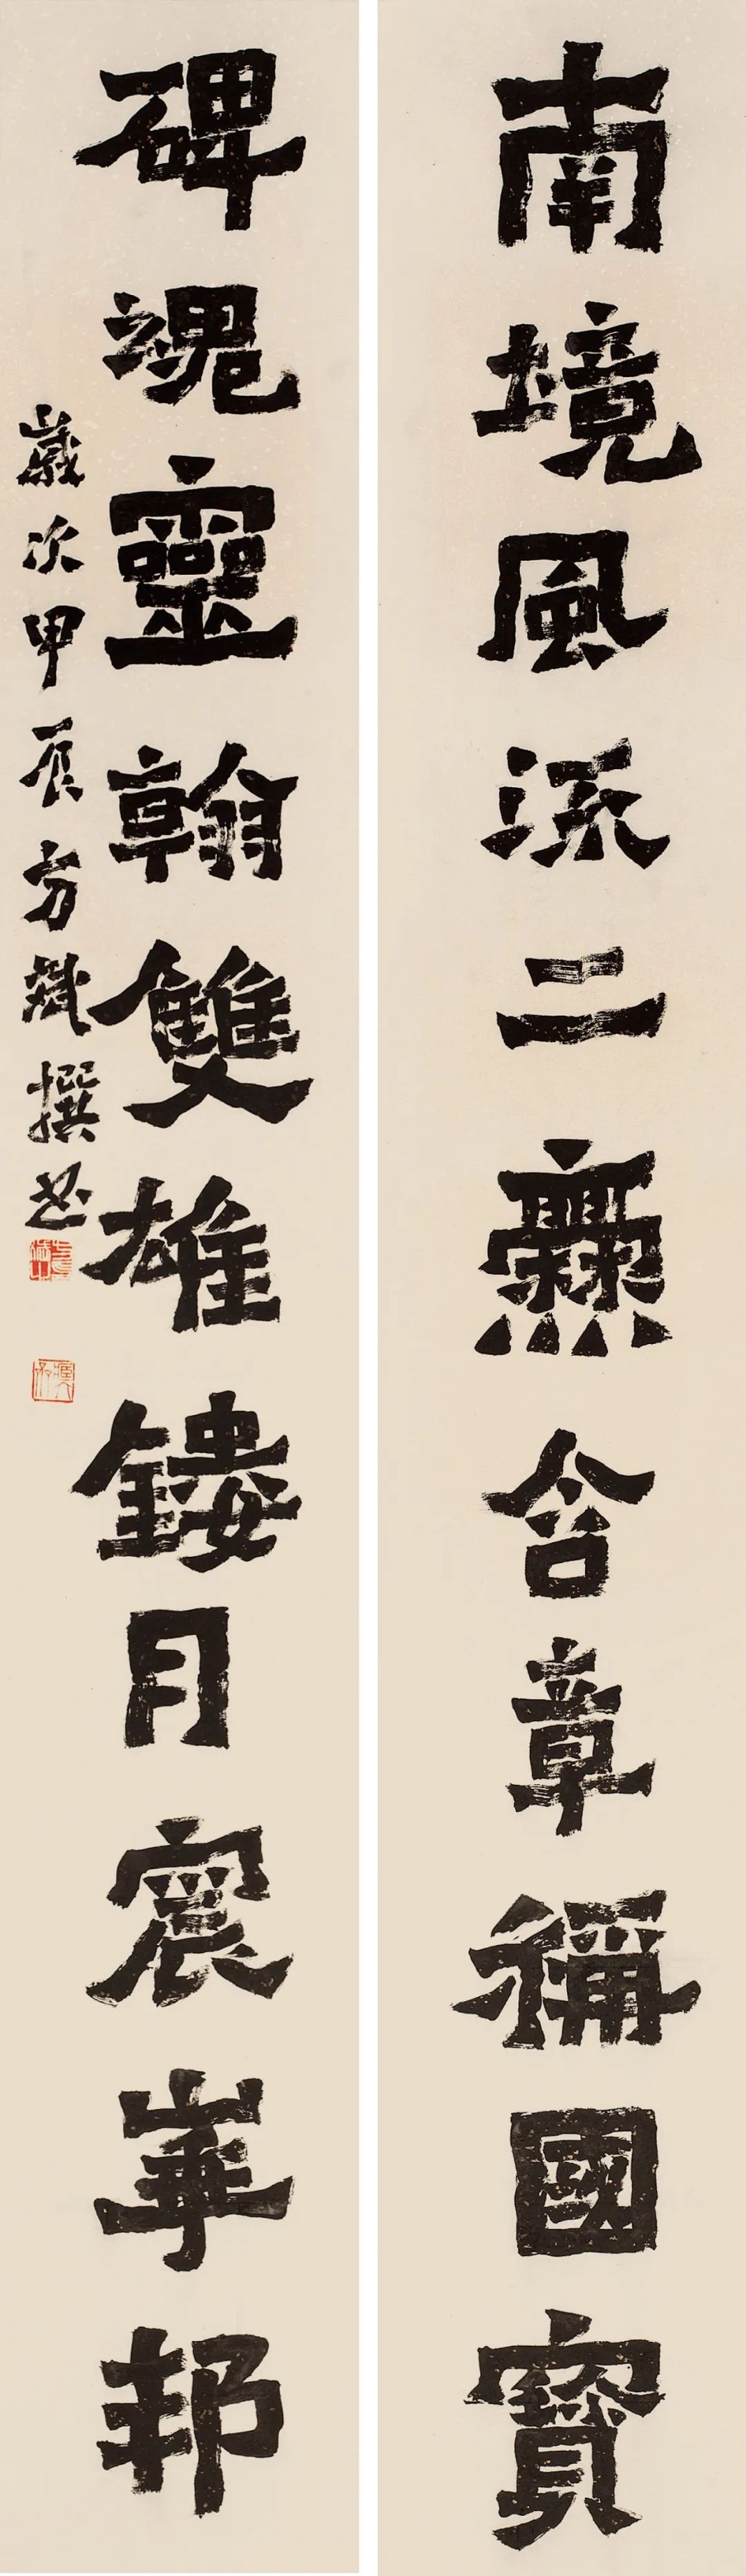 南境風流二爨含章稱國寶
碑魂靈翰雙雄鏤月震華邦
歲次甲辰方斌撰書